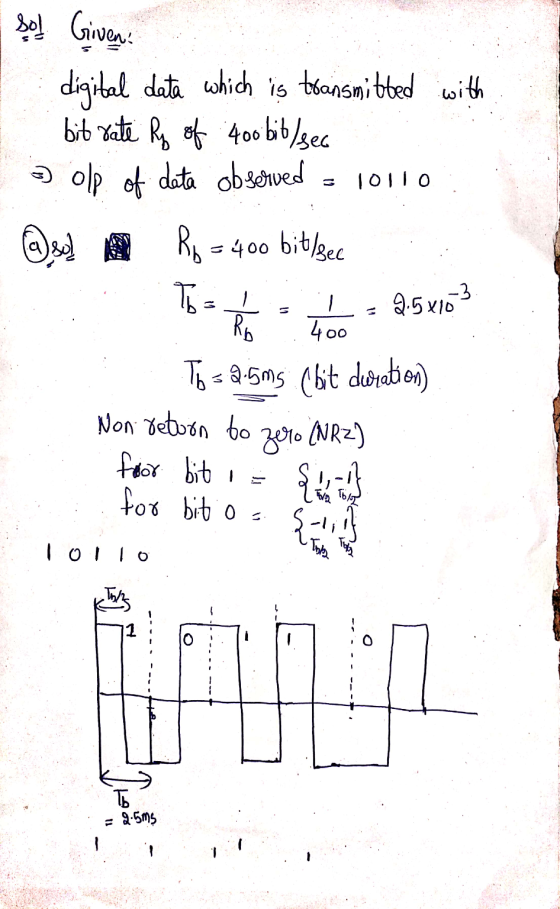 Sol Given:
digital data which is transmitted with
bit rate Rb of 400 bit/sec
⇒ o/p of data observed = 10110
(a) sol Rb = 400 bit/sec
Tb = 1/Rb = 1/400 = 2.5×10^-3
Tb = 2.5ms (bit duration)
Non return to zero (NRZ)
for bit 1 = {1, -1}
Tb/2 Tb/2
for bit 0 = {-1, 1}
Tb/2 Tb/2
1 0 1 1 0
Tb/2
1 0 1 1 0
Tb
= 2.5ms